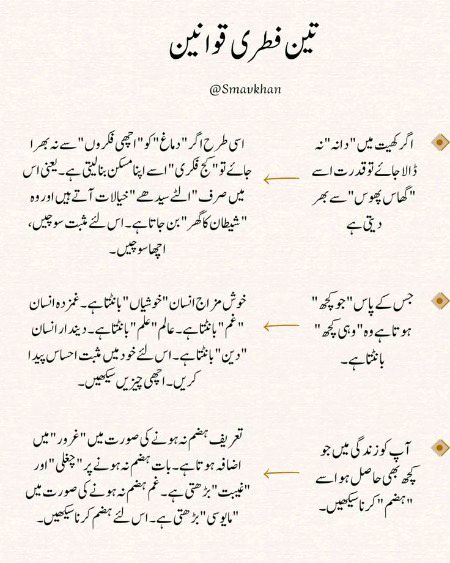 تین فطری قوانین
@Smavkhan
اگر کھیت میں "دانہ" نہ
ڈالا جائے تو قدرت اسے
"گھاس پھوس" سے بھر
دیتی ہے
اسی طرح اگر "دماغ" کو "اچھی فکروں" سے نہ بھرا
جائے تو "کج فکری" اسے اپنا مسکن بنا لیتی ہے۔ یعنی اس
میں صرف "الٹے سیدھے" خیالات آتے ہیں اور وہ
"شیطان کا گھر" بن جاتا ہے۔ اس لئے مثبت سوچیں،
اچھا سوچیں۔
جس کے پاس "جو کچھ"
ہوتا ہے وہ "وہی کچھ"
بانٹتا ہے۔
خوش مزاج انسان "خوشیاں" بانٹتا ہے۔ غمزدہ انسان
"غم" بانٹتا ہے۔ عالم "علم" بانٹتا ہے۔ دیندار انسان
"دین" بانٹتا ہے۔ اس لئے خود میں مثبت احساس پیدا
کریں۔ اچھی چیزیں سیکھیں۔
آپ کو زندگی میں جو
کچھ بھی حاصل ہو اسے
"ہضم" کرنا سیکھیں۔
تعریف ہضم نہ ہونے کی صورت میں "غرور" میں
اضافہ ہوتا ہے۔ بات ہضم نہ ہونے پر "چغلی" اور
"غیبت" بڑھتی ہے۔ غم ہضم نہ ہونے کی صورت میں
"مایوسی" بڑھتی ہے۔ اس لئے ہضم کرنا سیکھیں۔